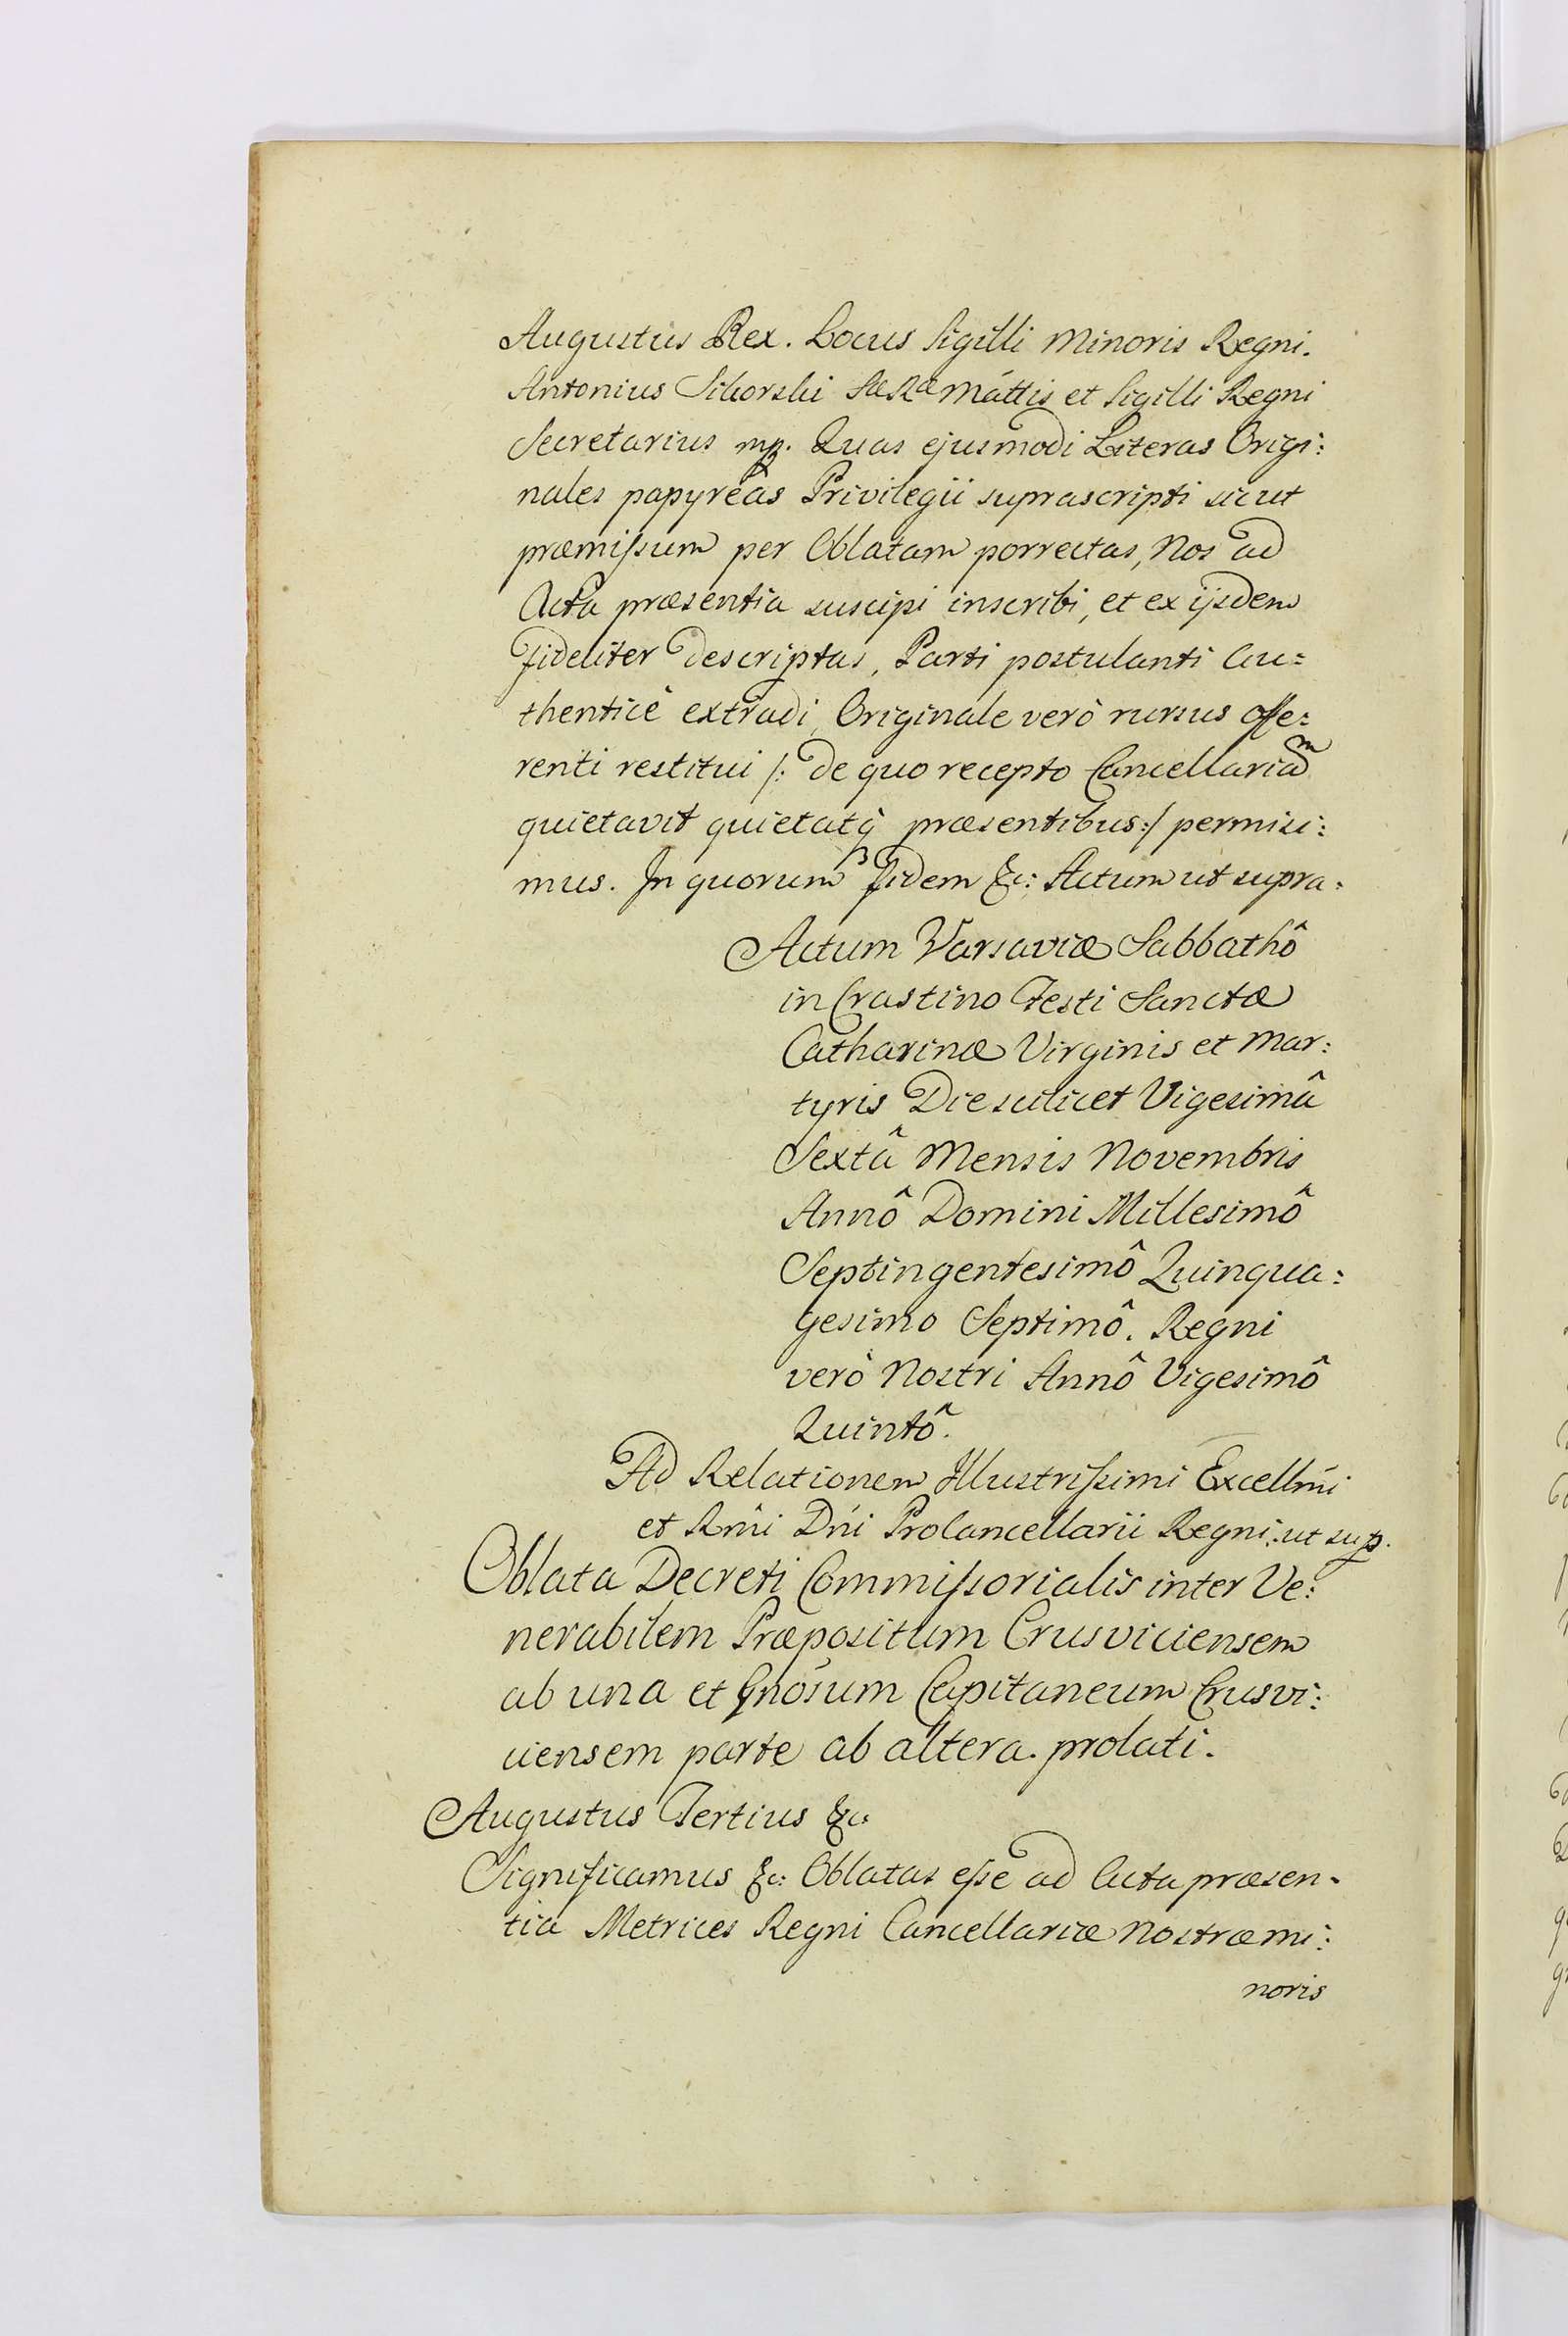 Augustus Rex. Locus Sigilli Minoris Regni.
Antonius Sikorski SæRæ Mattis et Sigilli Regni
Secretarius mp. Quas ejusmodi Literas Origi:
nales papyreas Privilegii suprascripti sicut
præmissum per Oblatam porrectas, Nos ad
Acta præsentia suscipi inscribi, et ex ijsdem
fideliter descriptas, Parti postulanti Au:
thenticè extradi, Originale verò rursus offe:
renti restitui /: de quo recepto Cancellariam
quietavit quietatq̀ præsentibus:/ permisi:
mus. In quorum fidem &c: Actum ut supra.
Actum Varsaviæ Sabbathô
in Crastino Festi Sanctæ
Catharinæ Virginis et Mar:
tyris Die scilicet Vigesimâ
Sextâ Mensis Novembris
Annô Domini Millesimô
Septingentesimô Quinqua:
gesimo Septimô. Regni
verò Nostri Annô Vigesimô
Quintô.
Ad Relationem Illustrissimi Excellmi
et Rmi Dni Procancellarii Regni: ut sup.
Oblata Decreti Commissorialis inter Ve:
nerabilem Præpositum Crusviciensem
ab una et Gnosum Capitaneum Crusvi:
ciensem parte ab altera. prolati.
Augustus Tertius &c
Significamus &c: Oblatas esse ad Acta præsen.
tia Metrices Regni Cancellariæ Nostræ mi:
noris